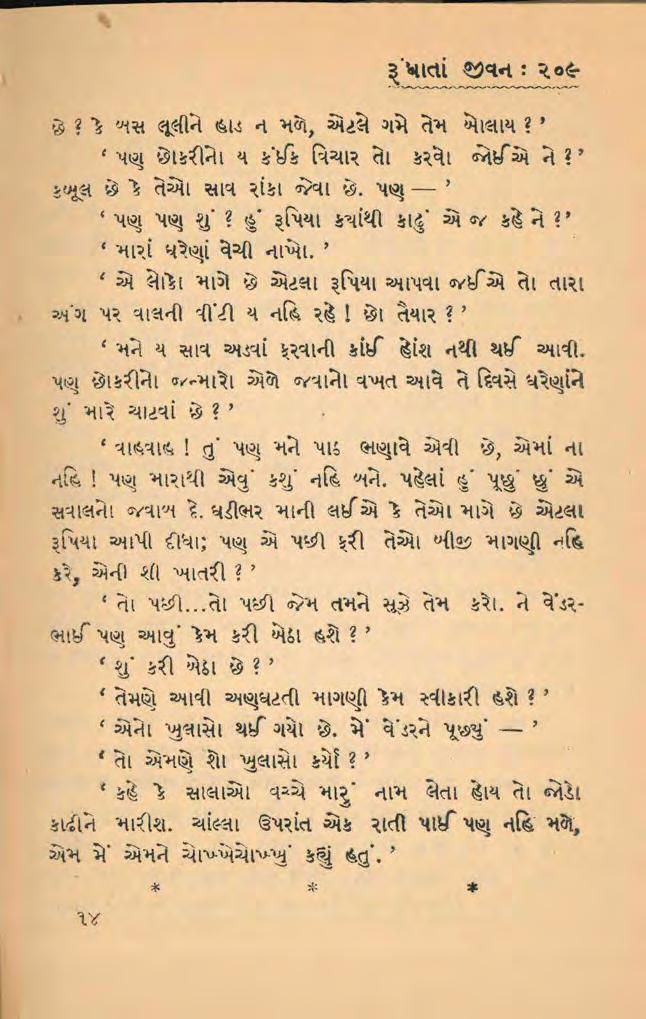 રૂંધાતાં જીવન : ૨૦૯
છે ? કે બસ લૂલીને હાડ ન મળે, એટલે ગમે તેમ બોલાય ? ’
‘ પણ છોકરીનો ય કંઈક વિચાર તો કરવો જોઈએ ને ? ’
કબૂલ છે કે તેઓ સાવ રાંકા જેવા છે. પણ — ’
‘ પણ પણ શું ? હું રૂપિયા ક્યાંથી કાઢું એ જ કહે ને ? ’
‘ મારાં ઘરેણાં વેચી નાખો. ’
‘ એ લોકો માગે છે એટલા રૂપિયા આપવા જઈએ તો તારા
અંગ પર વાલની વીંટી ય નહિ રહે ! છો તૈયાર ? ’
‘ મને ય સાવ અડવાં ફરવાની કાંઈ હોંશ નથી થઈ આવી.
પણ છોકરીનો જન્મારો એળે જવાનો વખત આવે તે દિવસે ઘરેણાંને
શું મારે ચાટવાં છે ? ’
‘ વાહવાહ ! તું પણ મને પાઠ ભણાવે એવી છે, એમાં ના
નહિ ! પણ મારાથી એવું કશું નહિ બને. પહેલાં હું પૂછું છું એ
સવાલનો જવાબ દે. ઘડીભર માની લઈએ કે તેઓ માગે છે એટલા
રૂપિયા આપી દીધા; પણ એ પછી ફરી તેઓ બીજી માગણી નહિ
કરે, એની શી ખાતરી ? ’
‘ તો પછી...તો પછી જેમ તમને સૂઝે તેમ કરો. ને વેંડર-
ભાઈ પણ આવું કેમ કરી બેઠા હશે ? ’
‘ શું કરી બેઠા છે ? ’
‘ તેમણે આવી અણઘટતી માગણી કેમ સ્વીકારી હશે ? ’
‘ એનો ખુલાસો થઈ ગયો છે. મેં વેંડરને પૂછ્યું — ’
‘ તો એમણે શો ખુલાસો કર્યો ? ’
‘ કહે કે સાલાઓ વચ્ચે મારું નામ લેતા હોય તો જોડો
કાઢીને મારીશ. ચાંલ્લા ઉપરાંત એક રાતી પાઈ પણ નહિ મળે,
એમ મેં એમને ચોખ્ખેચોખ્ખું કહ્યું હતું. ’
* * *
૧૪